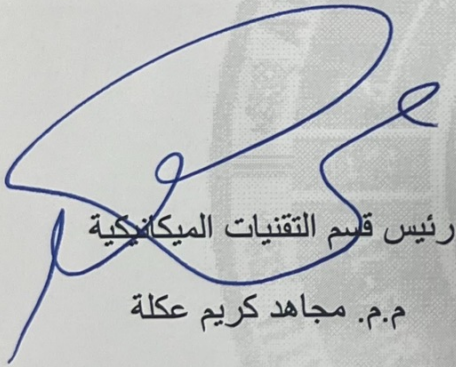 رئيس قسم التقنيات الميكانيكية
م.م. مجاهد كريم عكلة